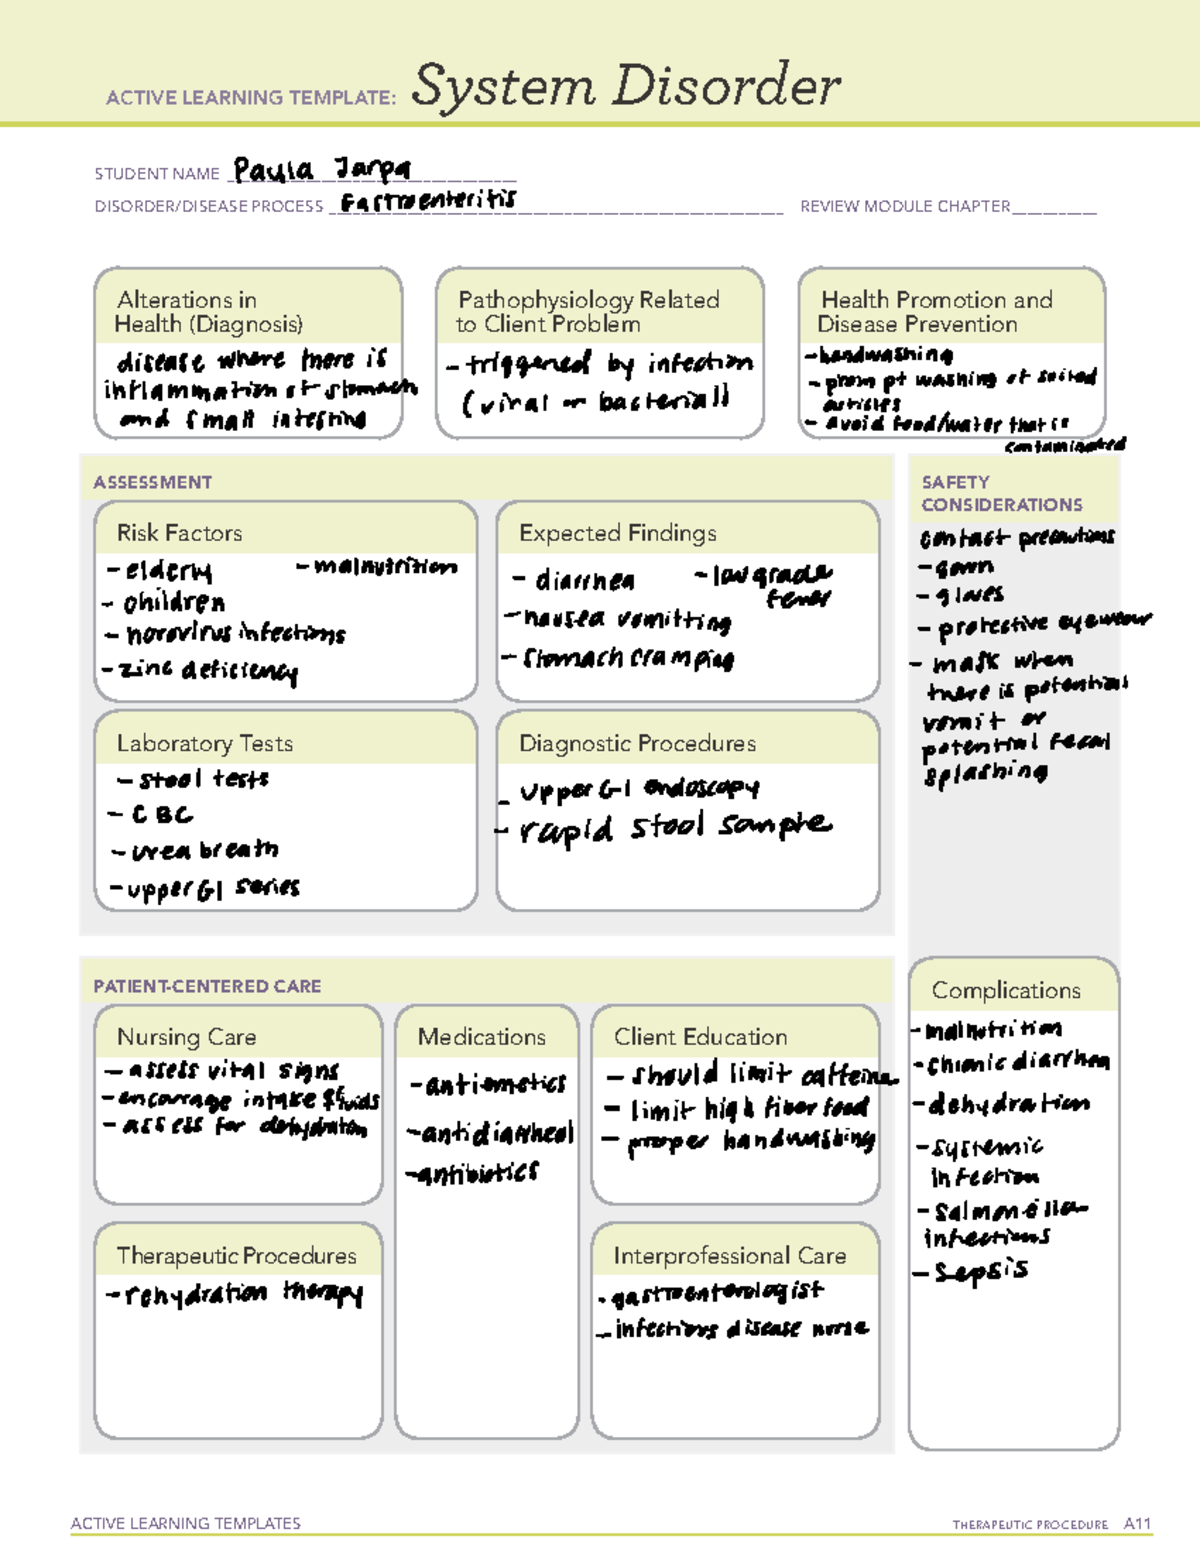 ACTIVE LEARNING TEMPLATE: System Disorder
STUDENT NAME Paula Jarpa
DISORDER/DISEASE PROCESS Gastroenteritis REVIEW MODULE CHAPTER
Alterations in
Health (Diagnosis)
disease where there is
inflammation of stomach
and small intestine
Pathophysiology Related
to Client Problem
- triggered by infection
(viral or bacterial)
Health Promotion and
Disease Prevention
- handwashing
- prompt washing of soiled
articles
- avoid food/water that is
contaminated
ASSESSMENT
Risk Factors
- elderly - malnutrition
- children
- norovirus infections
- zinc deficiency
Expected Findings
- diarrhea - low grade
fever
- nausea vomitting
- stomach cramping
Laboratory Tests
- stool tests
- CBC
- urea breath
- upper GI series
Diagnostic Procedures
- upper GI endoscopy
- rapid stool sample
SAFETY
CONSIDERATIONS
contact precautions
- gown
- gloves
- protective eyewear
- mask when
there is potential
vomit or
potential fecal
splashing
PATIENT-CENTERED CARE
Nursing Care
- assess vital signs
- encourage intake & fluids
- assess for dehydration
Medications
- antiemetics
- antidiarrheal
- antibiotics
Client Education
- should limit caffeine
- limit high fiber food
- proper handwashing
Therapeutic Procedures
- rehydration therapy
Interprofessional Care
- gastroenterologist
- infectious disease nurse
Complications
- malnutrition
- chronic diarrhea
- dehydration
- systemic
infection
- salmonella
infections
- sepsis
ACTIVE LEARNING TEMPLATES THERAPEUTIC PROCEDURE A11